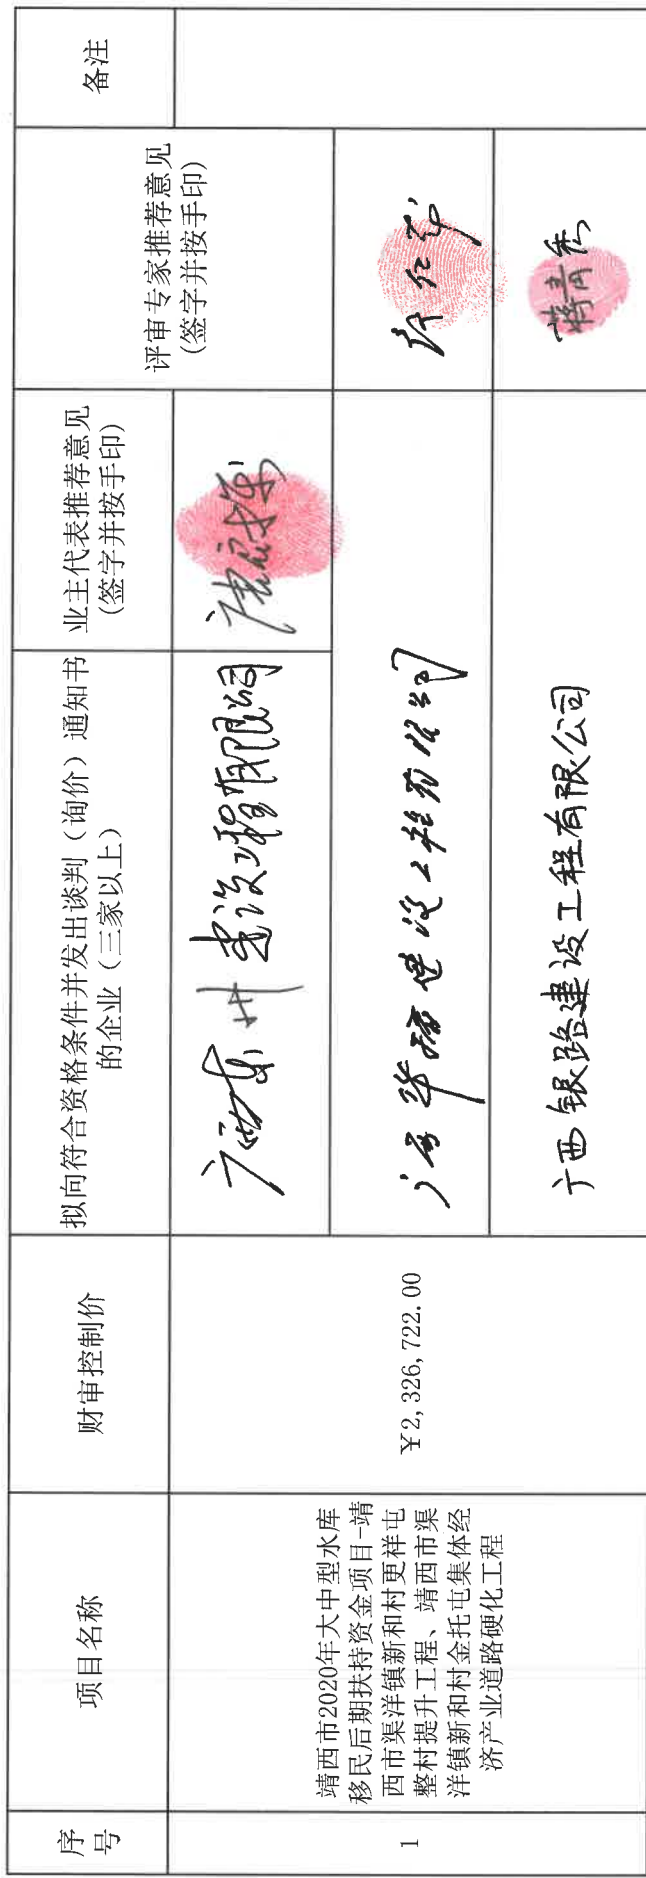 序
号
项目名称
财审控制价
拟向符合资格条件并发出谈判（询价）通知书
的企业（三家以上）
业主代表推荐意见
(签字并按手印)
评审专家推荐意见
(签字并按手印)
备注
1
靖西市2020年大中型水库
移民后期扶持资金项目-靖
西市渠洋镇新和村更祥屯
整村提升工程、靖西市渠
洋镇新和村金托屯集体经
济产业道路硬化工程
￥2,326,722.00
广西 建设工程有限公司
广西华 建设工程有限公司
广西银路建设工程有限公司
蒋青秀